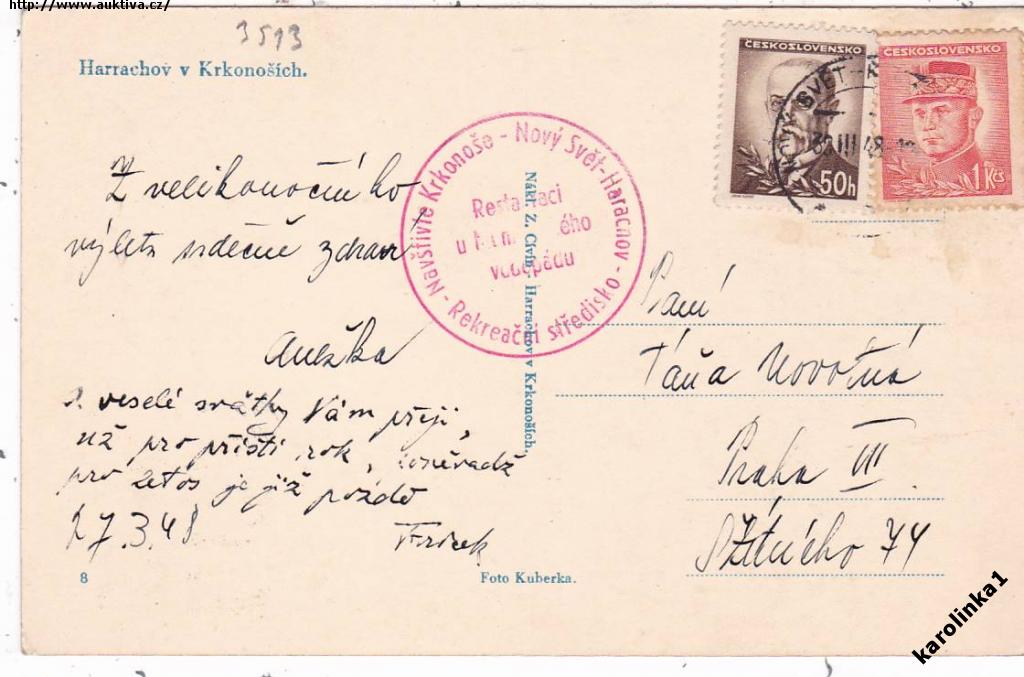 http://www.auktiva.cz/
3513
Harrachov v Krkonoších.
ČESKOSLOVENSKO
50h
ČESKOSLOVENSKO
1 Kčs
NOVÝ SVĚT
III 48
Navštivte Krkonoše - Nový Svět-Harachov - Rekreační středisko -
Restauraci
u
vodopádu
Z velikonočního
výletu srdečně zdraví
Anežka
veselé svátky Vám přeji,
už pro příští rok, poněvadž
pro letos je již pozdě
27.3.48
Fricek
8
Nákl. Z. Civín, Harrachov v Krkonoších.
Foto Kuberka.
Paní
Táňa Novotná
Praha VII.
74
karolinka1